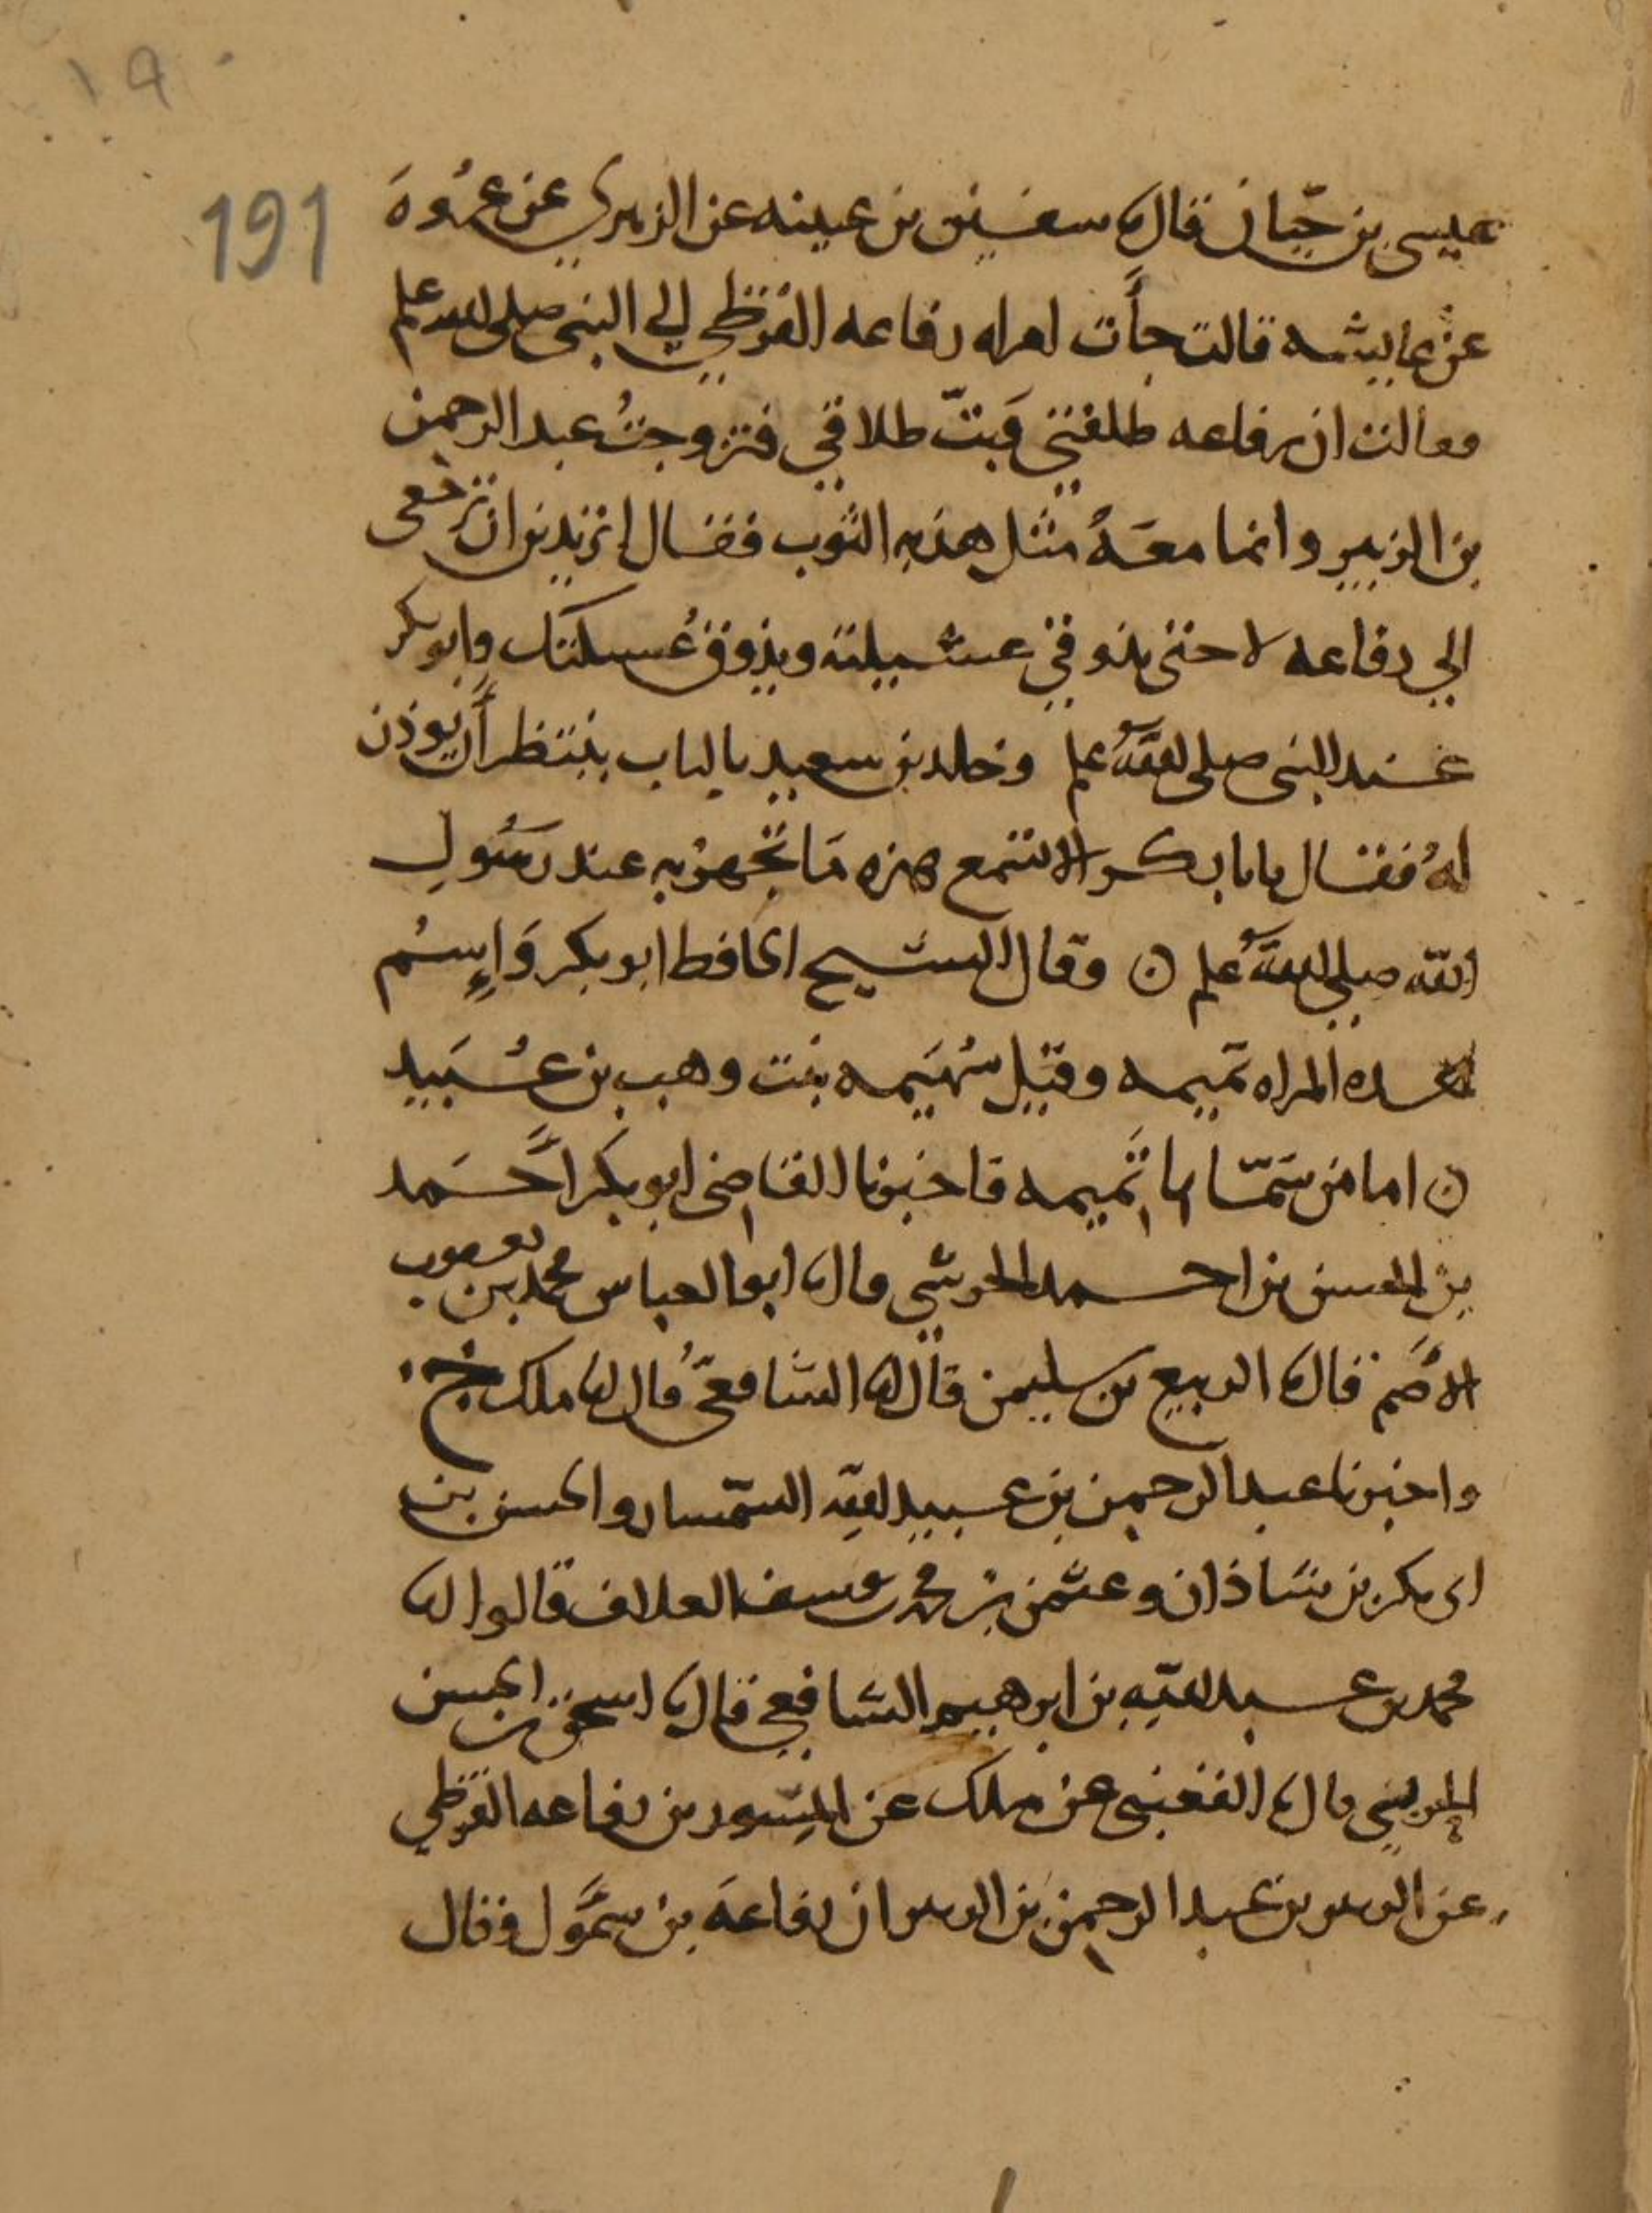 ١٩٠
191
عيسى بن حيان قال نا سفين بن عيينه عن الزهري عن عروة
عن عايشه قالت جأت امراه رفاعه القرظي الي النبي صلى الله علم
فقالت ان رفاعه طلقني فبتّ طلاقي فتزوجتُ عبد الرحمن
بن الزبير وانما معهُ مثل هدبه الثوب فقال اتريدين ان ترجعى
الي رفاعه لا حتى تذوقي عسيلته ويذوق عُسيلتك وابو بكر
عند النبى صلى اللهُ علم وخالد بن سعيد بالباب ينتظر أن يوذن
لهُ فقال يابا بكر الا تسمع هذه مَا تجهرُ به عند رسُولِ
الله صلى اللهُ علم ن وقال الشيح الحافظ ابو بكر وَاِسمُ
هذه المراه تميمه وقيل سُهَيمه بنت وهب بن عُبَيد
ن اما من سَمّاها تميمه فاخبرنا القاضى ابو بكر أحمد
بن الحسن بن احمد الحرشي قال نا ابو العباس محمد بن يعقوب
الأصَم قال نا الربيع بن سليمن قال انا الشافعىُّ قال انا ملك ح
واخبرنا عبد الرحمن بن عبيد الله السّمسار والحسن بن
ابى بكر بن شاذان وعثمن بن محمد بن يوسف العلاف قالوا انا
محمد بن عبد الله بن ابرهيم الشافعي قال نا اسحق بن الحسن
الحربيِ قال نا القعنبى عن ملك عن المِسور بن رفاعه القرظي
عن الزبير بن عبد الرحمن بن الزبير ان رفاعهَ بن سموَّل وقال